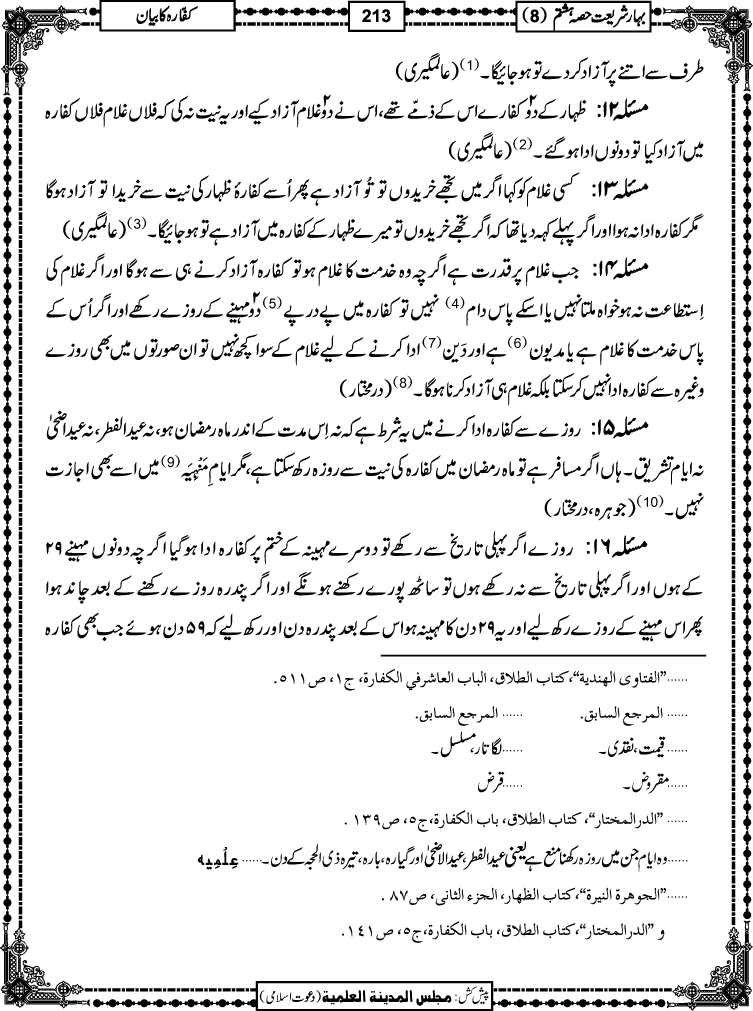 بہار شریعت حصہ ہشتم (8)
213
کفارہ کا بیان
طرف سے اتنے پر آزاد کر دے تو ہو جائیگا۔(1) (عالمگیری)
مسئلہ ۱۲: ظہار کے دو۲ کفارے اس کے ذمّے تھے، اس نے دو۲ غلام آزاد کیے اور یہ نیت نہ کی کہ فلاں غلام فلاں کفارہ
میں آزاد کیا تو دونوں ادا ہو گئے۔(2) (عالمگیری)
مسئلہ ۱۳: کسی غلام کو کہا اگر میں تجھے خریدوں تو تُو آزاد ہے پھر اُسے کفارۂ ظہار کی نیت سے خریدا تو آزاد ہوگا
مگر کفارہ ادا نہ ہوا اور اگر پہلے کہہ دیا تھا کہ اگر تجھے خریدوں تو میرے ظہار کے کفارہ میں آزاد ہے تو ہو جائیگا۔(3) (عالمگیری)
مسئلہ ۱۴: جب غلام پر قدرت ہے اگرچہ وہ خدمت کا غلام ہو تو کفارہ آزاد کرنے ہی سے ہوگا اور اگر غلام کی
اِستطاعت نہ ہو خواہ ملتا نہیں یا اسکے پاس دام (4) نہیں تو کفارہ میں پے درپے (5) دو۲ مہینے کے روزے رکھے اور اگر اُس کے
پاس خدمت کا غلام ہے یا مدیون (6) ہے اور دَین (7) ادا کرنے کے لیے غلام کے سوا کچھ نہیں تو ان صورتوں میں بھی روزے
وغیرہ سے کفارہ ادا نہیں کرسکتا بلکہ غلام ہی آزاد کرنا ہوگا۔(8) (درمختار)
مسئلہ ۱۵: روزے سے کفارہ ادا کرنے میں یہ شرط ہے کہ نہ اِس مدت کے اندر ماہ رمضان ہو، نہ عید الفطر، نہ عید اضحیٰ
نہ ایام تشریق۔ ہاں اگر مسافر ہے تو ماہ رمضان میں کفارہ کی نیت سے روزہ رکھ سکتا ہے، مگر ایامِ مَنْہِیَہ (9) میں اسے بھی اجازت
نہیں۔(10) (جوہرہ، درمختار)
مسئلہ ۱۶: روزے اگر پہلی تاریخ سے رکھے تو دوسرے مہینہ کے ختم پر کفارہ ادا ہوگیا اگرچہ دونوں مہینے ۲۹
کے ہوں اور اگر پہلی تاریخ سے نہ رکھے ہوں تو ساٹھ پورے رکھنے ہونگے اور اگر پندرہ روزے رکھنے کے بعد چاند ہوا
پھر اس مہینے کے روزے رکھ لیے اور یہ ۲۹ دن کا مہینہ ہو اس کے بعد پندرہ دن اور رکھ لیے کہ ۵۹ دن ہوئے جب بھی کفارہ
......"الفتاوى الهندية"، كتاب الطلاق، الباب العاشر في الكفارة، ج١، ص٥١١.
...... المرجع السابق. ...... المرجع السابق.
...... قیمت، نقدی۔ ......لگاتار، مسلسل۔
......مقروض۔ ......قرض
...... "الدرالمختار"، كتاب الطلاق، باب الكفارة، ج٥، ص١٣٩ .
......وہ ایام جن میں روزہ رکھنا منع ہے یعنی عید الفطر، عید الاضحیٰ اور گیارہ، بارہ، تیرہ ذی الحجہ کے دن۔...... عِلْمِیه
......"الجوهرة النيرة"، كتاب الظهار، الجزء الثانى، ص٨٧ .
و "الدرالمختار"، كتاب الطلاق، باب الكفارة، ج٥، ص١٤١.
پیش کش: مجلس المدينة العلمية (دعوت اسلامی)